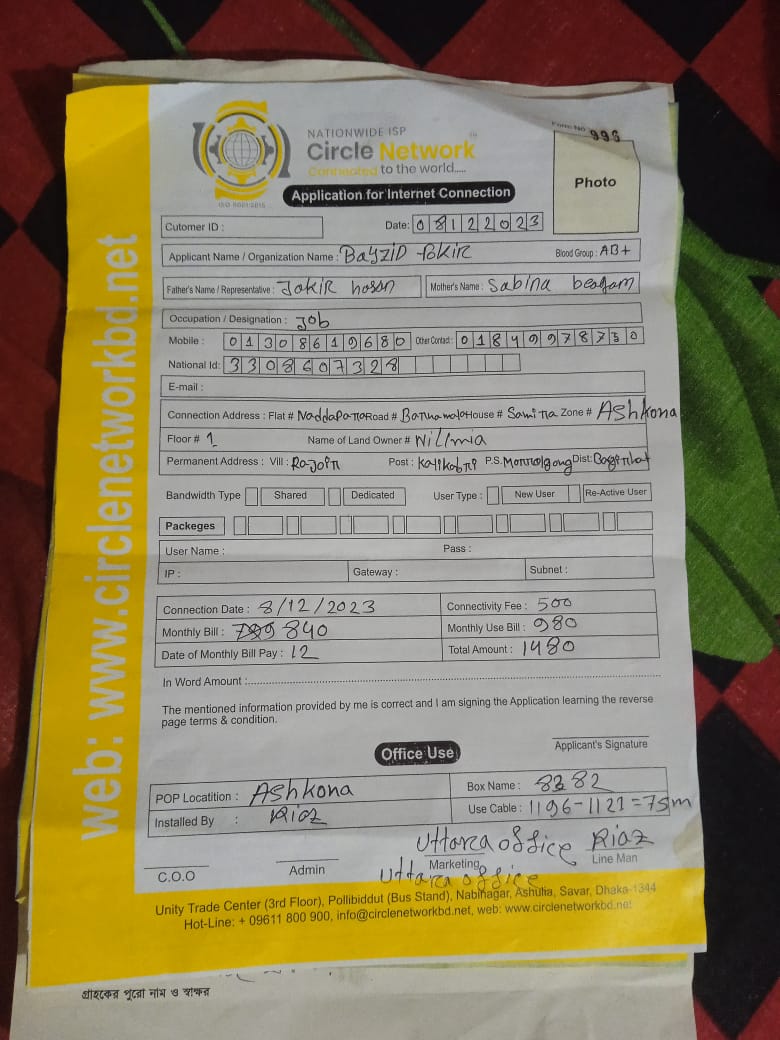 Form No 996
NATIONWIDE ISP
Circle Network
Connected to the world.....
ISO 9001:2015
Application for Internet Connection
Photo
Cutomer ID :
Date: 08122023
Applicant Name / Organization Name : BayziD fokir
Blood Group : AB+
Father's Name / Representative : Jakir hosan
Mother's Name : Sabina beagam
Occupation / Designation : Job
Mobile : 01308619680 Other Contact : 01849978730
National Id: 3308607328
E-mail :
Connection Address : Flat # Road # House # Zone # Ashkona
Floor # 1 Name of Land Owner #
Permanent Address : Vill : Post : P.S. Dist:
Bandwidth Type Shared Dedicated User Type : New User Re-Active User
Packeges
User Name : Pass :
IP : Gateway : Subnet :
Connection Date : 8/12/2023 Connectivity Fee : 500
Monthly Bill : 840 Monthly Use Bill : 980
Date of Monthly Bill Pay : 12 Total Amount : 1480
In Word Amount :
The mentioned information provided by me is correct and I am signing the Application learning the reverse
page terms & condition.
Applicant's Signature
Office Use
POP Locatition : Ashkona Box Name : 8382
Installed By : Riaz Use Cable : 1196-1121=75m
Uttara office Riaz
C.O.O Admin Marketing Line Man
Uttara office
Unity Trade Center (3rd Floor), Pollibiddut (Bus Stand), Nabinagar, Ashulia, Savar, Dhaka-1344
Hot-Line: + 09611 800 900, info@circlenetworkbd.net, web: www.circlenetworkbd.net
web: www.circlenetworkbd.net
গ্রাহকের পুরো নাম ও স্বাক্ষর